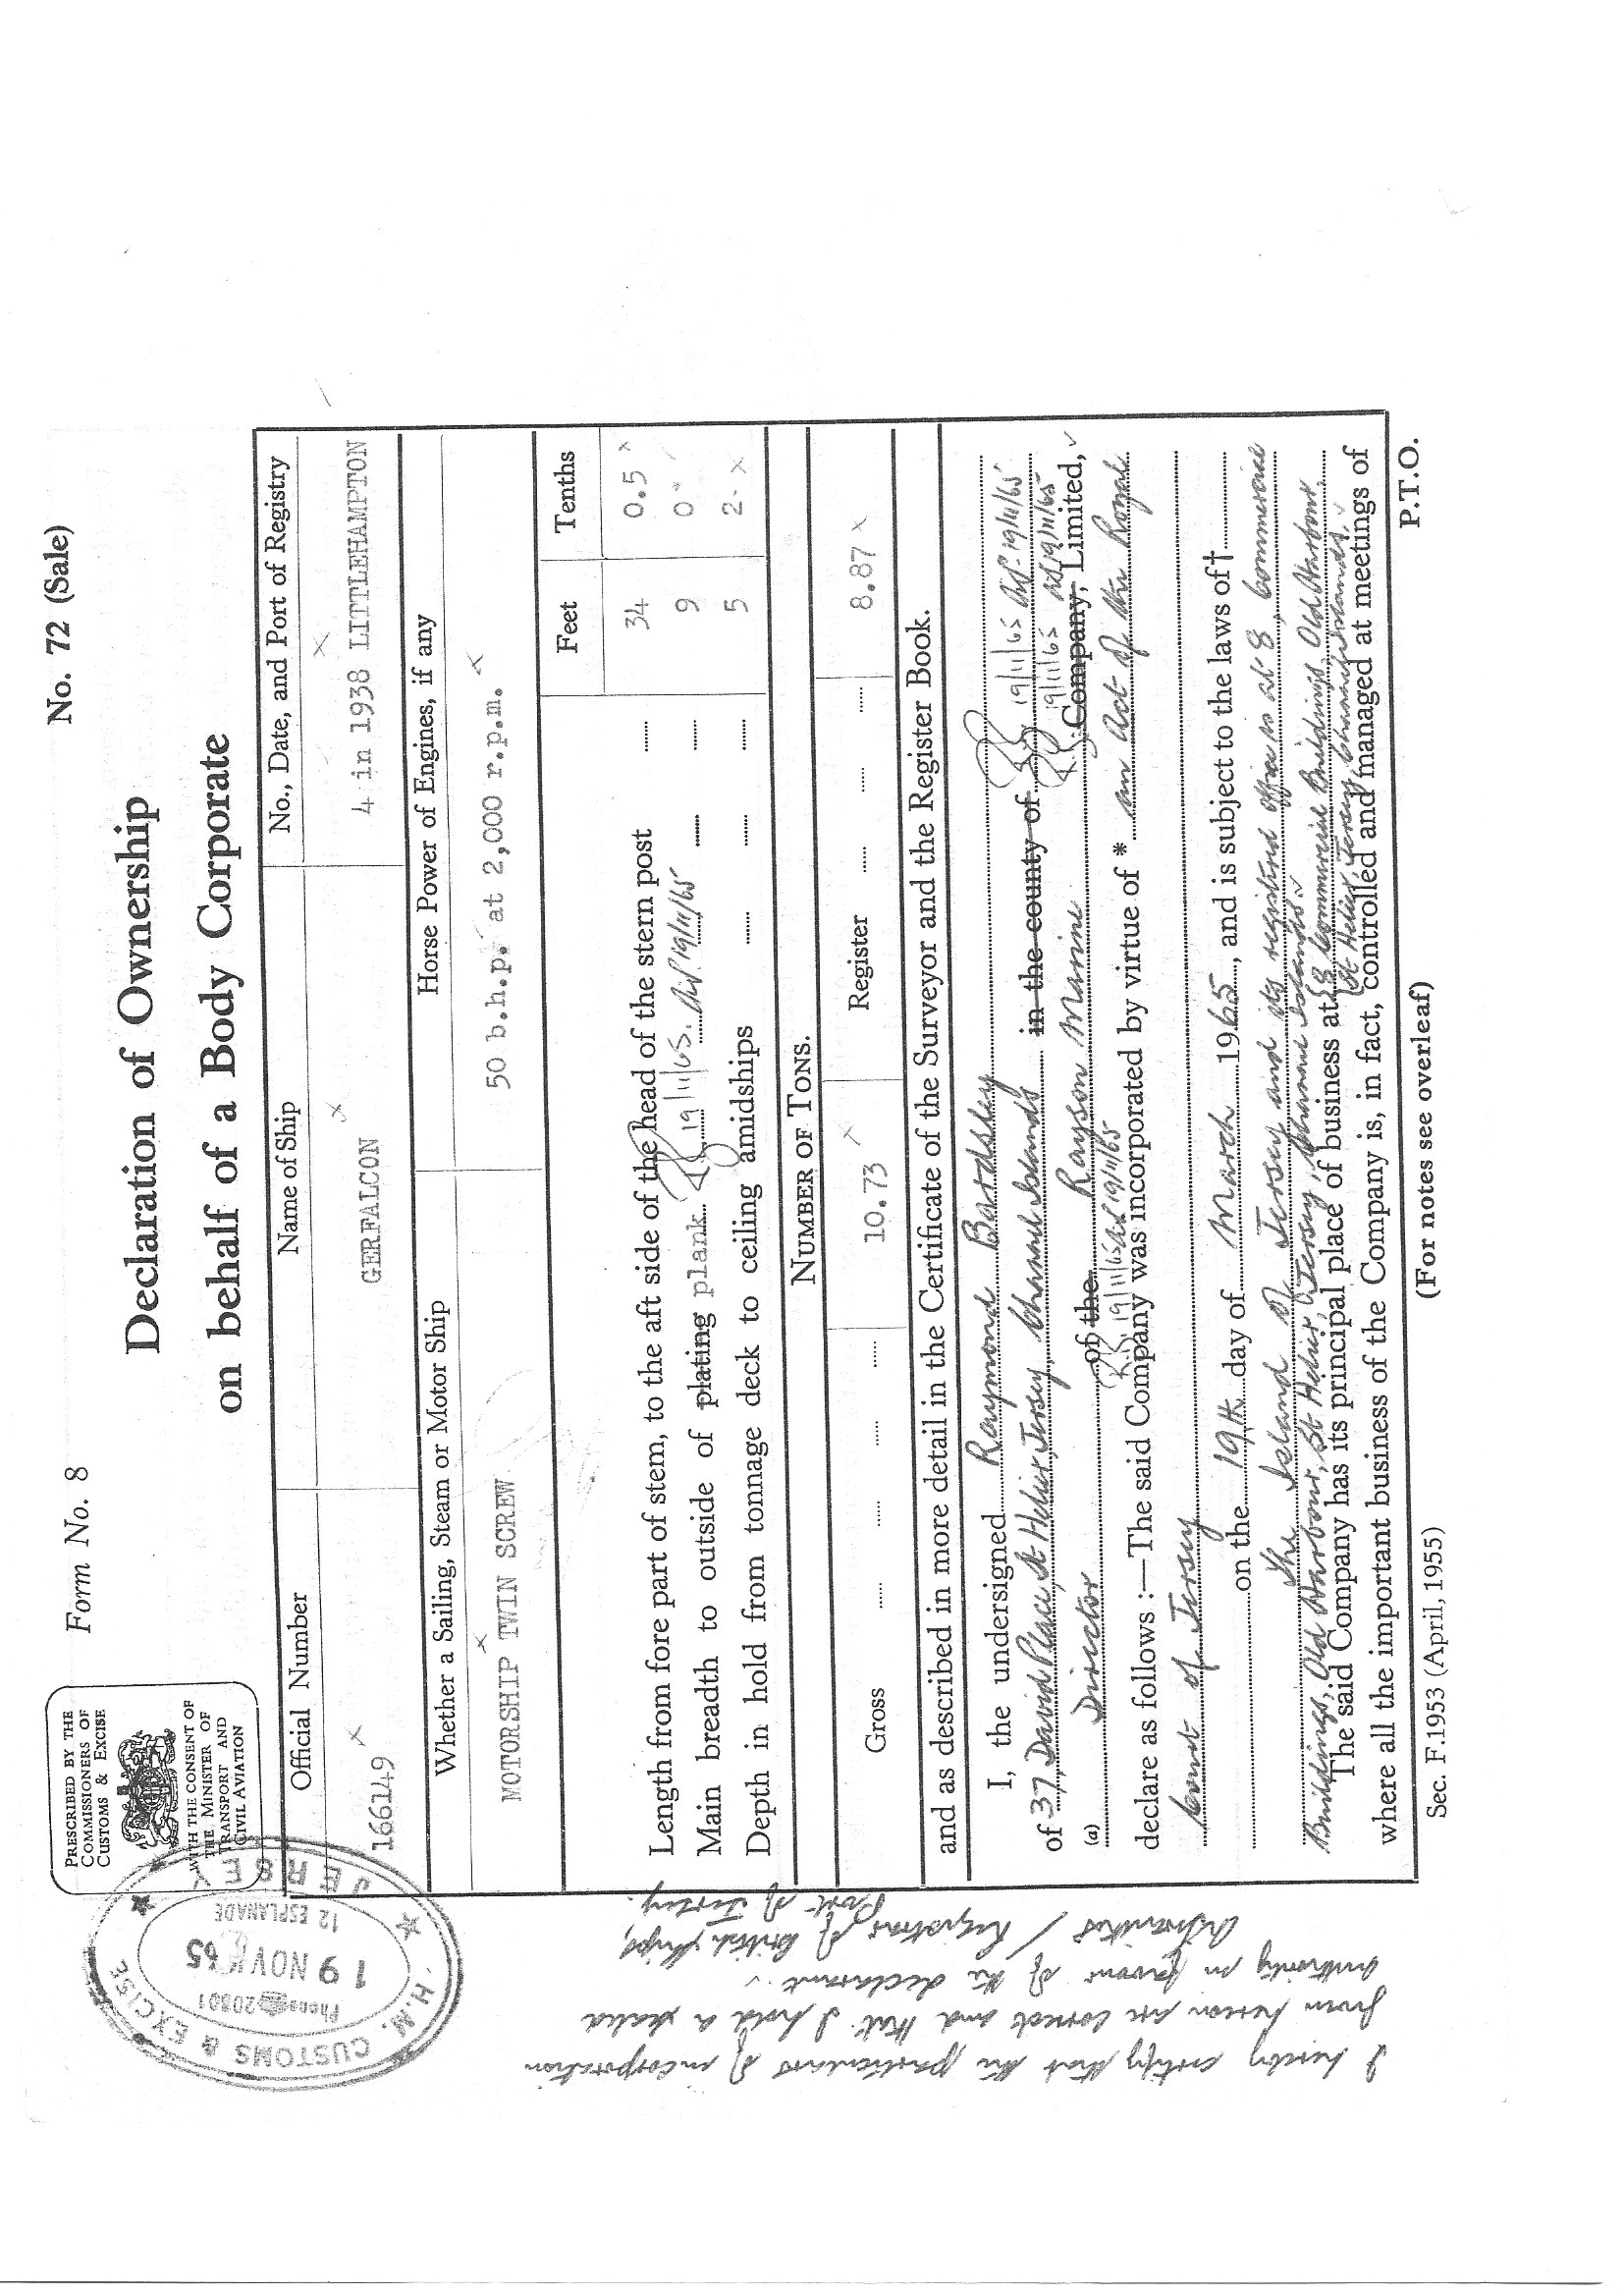 PRESCRIBED BY THE
COMMISSIONERS OF
CUSTOMS & EXCISE
WITH THE CONSENT OF
THE MINISTER OF
TRANSPORT AND
CIVIL AVIATION
Form No. 8
No. 72 (Sale)
Declaration of Ownership
on behalf of a Body Corporate
Official Number
Name of Ship
No., Date, and Port of Registry
166149 x
GERFALCON x
4 in 1938 LITTLEHAMPTON x
Whether a Sailing, Steam or Motor Ship
Horse Power of Engines, if any
MOTORSHIP TWIN SCREW x
50 b.h.p. at 2,000 r.p.m. x
Feet Tenths
Length from fore part of stem, to the aft side of the head of the stern post ...... 34 0.5 x
Main breadth to outside of plating plank RB 19/11/65. 19/11/65 ...... 9 0
Depth in hold from tonnage deck to ceiling amidships ...... 5 2. x
NUMBER OF TONS.
Gross ...... 10.73 x Register ...... 8.87 x
and as described in more detail in the Certificate of the Surveyor and the Register Book.
I, the undersigned Raymond Bardsley 19/11/65 19/11/65
of 37, David Place, St Helier, Jersey, Channel Islands in the county of 19/11/65 19/11/65
(a) Director of the Rayson Marine Company, Limited,
19/11/65 19/11/65
declare as follows :—The said Company was incorporated by virtue of * an Act of the Royal
Court of Jersey
on the 19th day of March 1965, and is subject to the laws of†
the Island of Jersey and its registered office is at 8, Commercial
Buildings, Old Harbour, St Helier, Jersey, Channel Islands.
The said Company has its principal place of business at 8 Commercial Buildings, Old Harbour,
St Helier, Jersey, Channel Islands.
where all the important business of the Company is, in fact, controlled and managed at meetings of
Sec. F.1953 (April, 1955)
(For notes see overleaf)
P.T.O.
H.M. CUSTOMS & EXCISE
JERSEY
Phone 20301
19 NOV 65
12 ESPLANADE
I hereby certify that the particulars of incorporation
given hereon are correct and that I hold a sealed
authority in favour of the declarant.
Registrar of British Ships,
Port of Jersey.